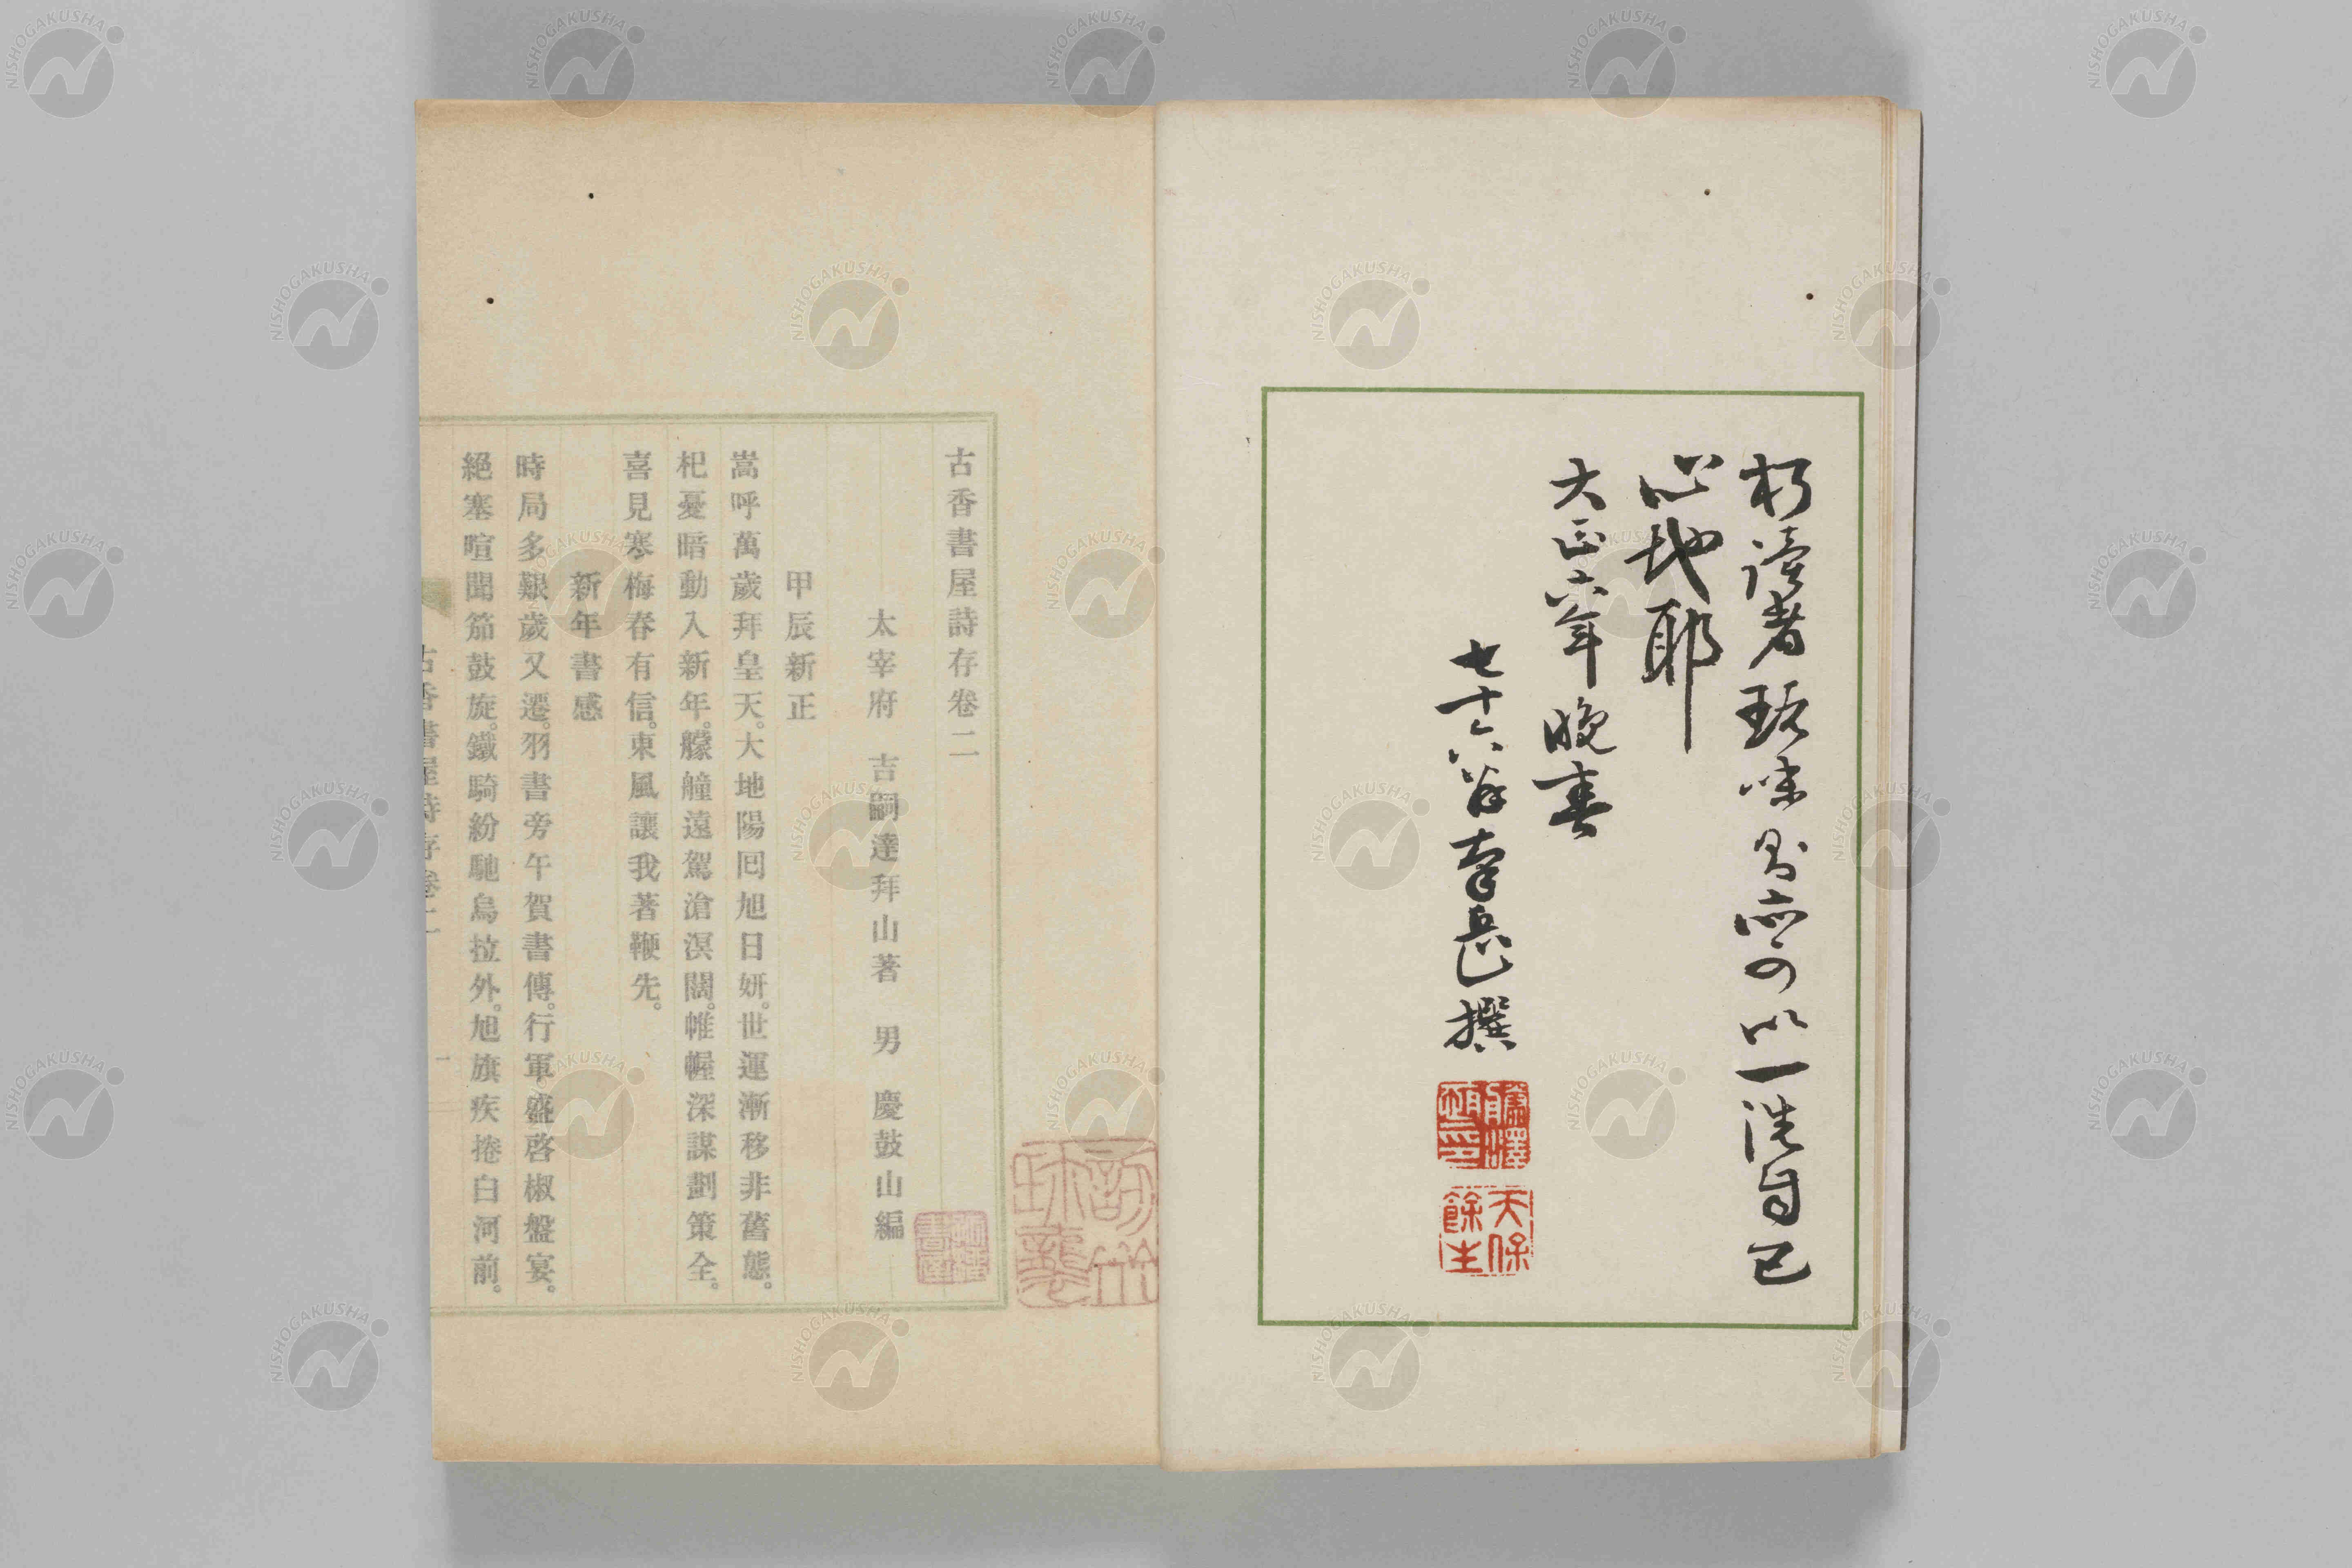 朽讀者玩味焉亦可以一洗自己
心地耶
大正六年晚春
七十六翁南岳撰
天保餘生
古香書屋詩存卷二
太宰府 吉嗣達拜山著 男 慶鼓山編
甲辰新正
嵩呼萬歲拜皇天。大地陽回旭日妍。世運漸移非舊態。
杞憂暗動入新年。艨艟遠駕滄溟闊。帷幄深謀劃策全。
喜見寒梅春有信。東風讓我著鞭先。
新年書感
時局多艱歲又遷。羽書旁午賀書傳。行軍盛啓椒盤宴。
絕塞喧聞笳鼓旋。鐵騎紛馳烏拉外。旭旗疾捲白河前。
古香書屋詩存卷二
一
NISHOGAKUSHA